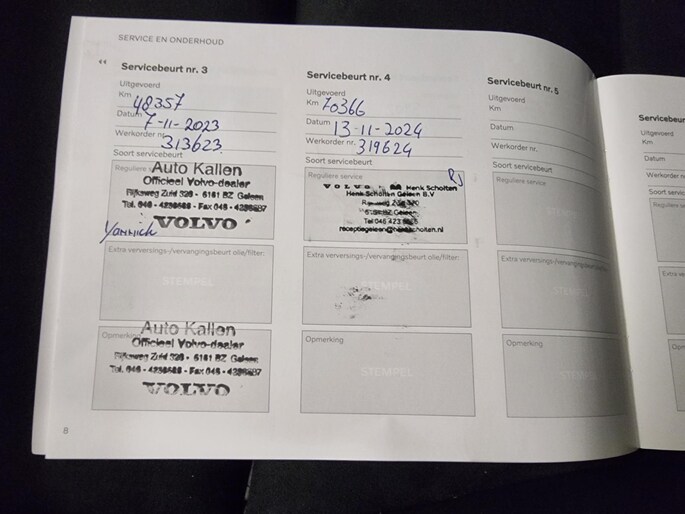 SERVICE EN ONDERHOUD
Servicebeurt nr. 3
Uitgevoerd
Km 48357
Datum 7-11-2023
Werkorder nr. 313623
Soort servicebeurt
Reguliere service
Auto Kallen
Officieel Volvo-dealer
Rijksweg Zuid 328 - 6161 BZ Geleen
Tel. 046 - 4256688 - Fax 046 -
VOLVO
Yannick
Extra verversings-/vervangingsbeurt olie/filter:
STEMPEL
Opmerking
Auto Kallen
Officieel Volvo-dealer
Rijksweg Zuid 328 - 6161 BZ Geleen
Tel. 046 - 4256688 - Fax 046 -
VOLVO
8
Servicebeurt nr. 4
Uitgevoerd
Km 70366
Datum 13-11-2024
Werkorder nr. 319624
Soort servicebeurt
Reguliere service
RJ
VOLVO Henk Scholten
Henk Scholten Geleen B.V
Geleen
Tel 046 423
receptiegeleen@henkscholten.nl
Extra verversings-/vervangingsbeurt olie/filter:
STEMPEL
Opmerking
STEMPEL
Servicebeurt nr. 5
Uitgevoerd
Km
Datum
Werkorder nr.
Soort servicebeurt
Reguliere service
Extra verversings-/vervangingsbeurt
STEMPEL
Opmerking
STEMPEL
Servicebeur
Uitgevoerd
Km
Datum
Werkorder nr.
Soort servicebeurt
Reguliere se
Extra verver
Opmerking